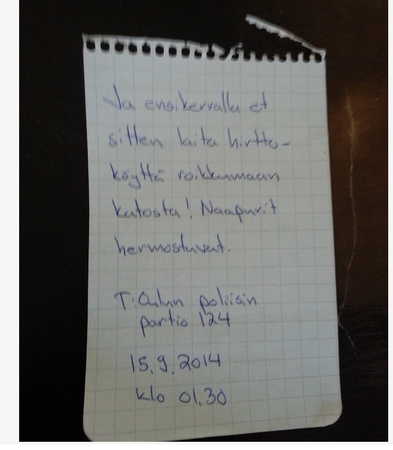 Ja ensikerralla et
sitten laita hirtto-
köyttä roikkumaan
katosta! Naapurit
hermostuvat.
T: Oulun poliisin
partio 124
15.9.2014
klo 01.30